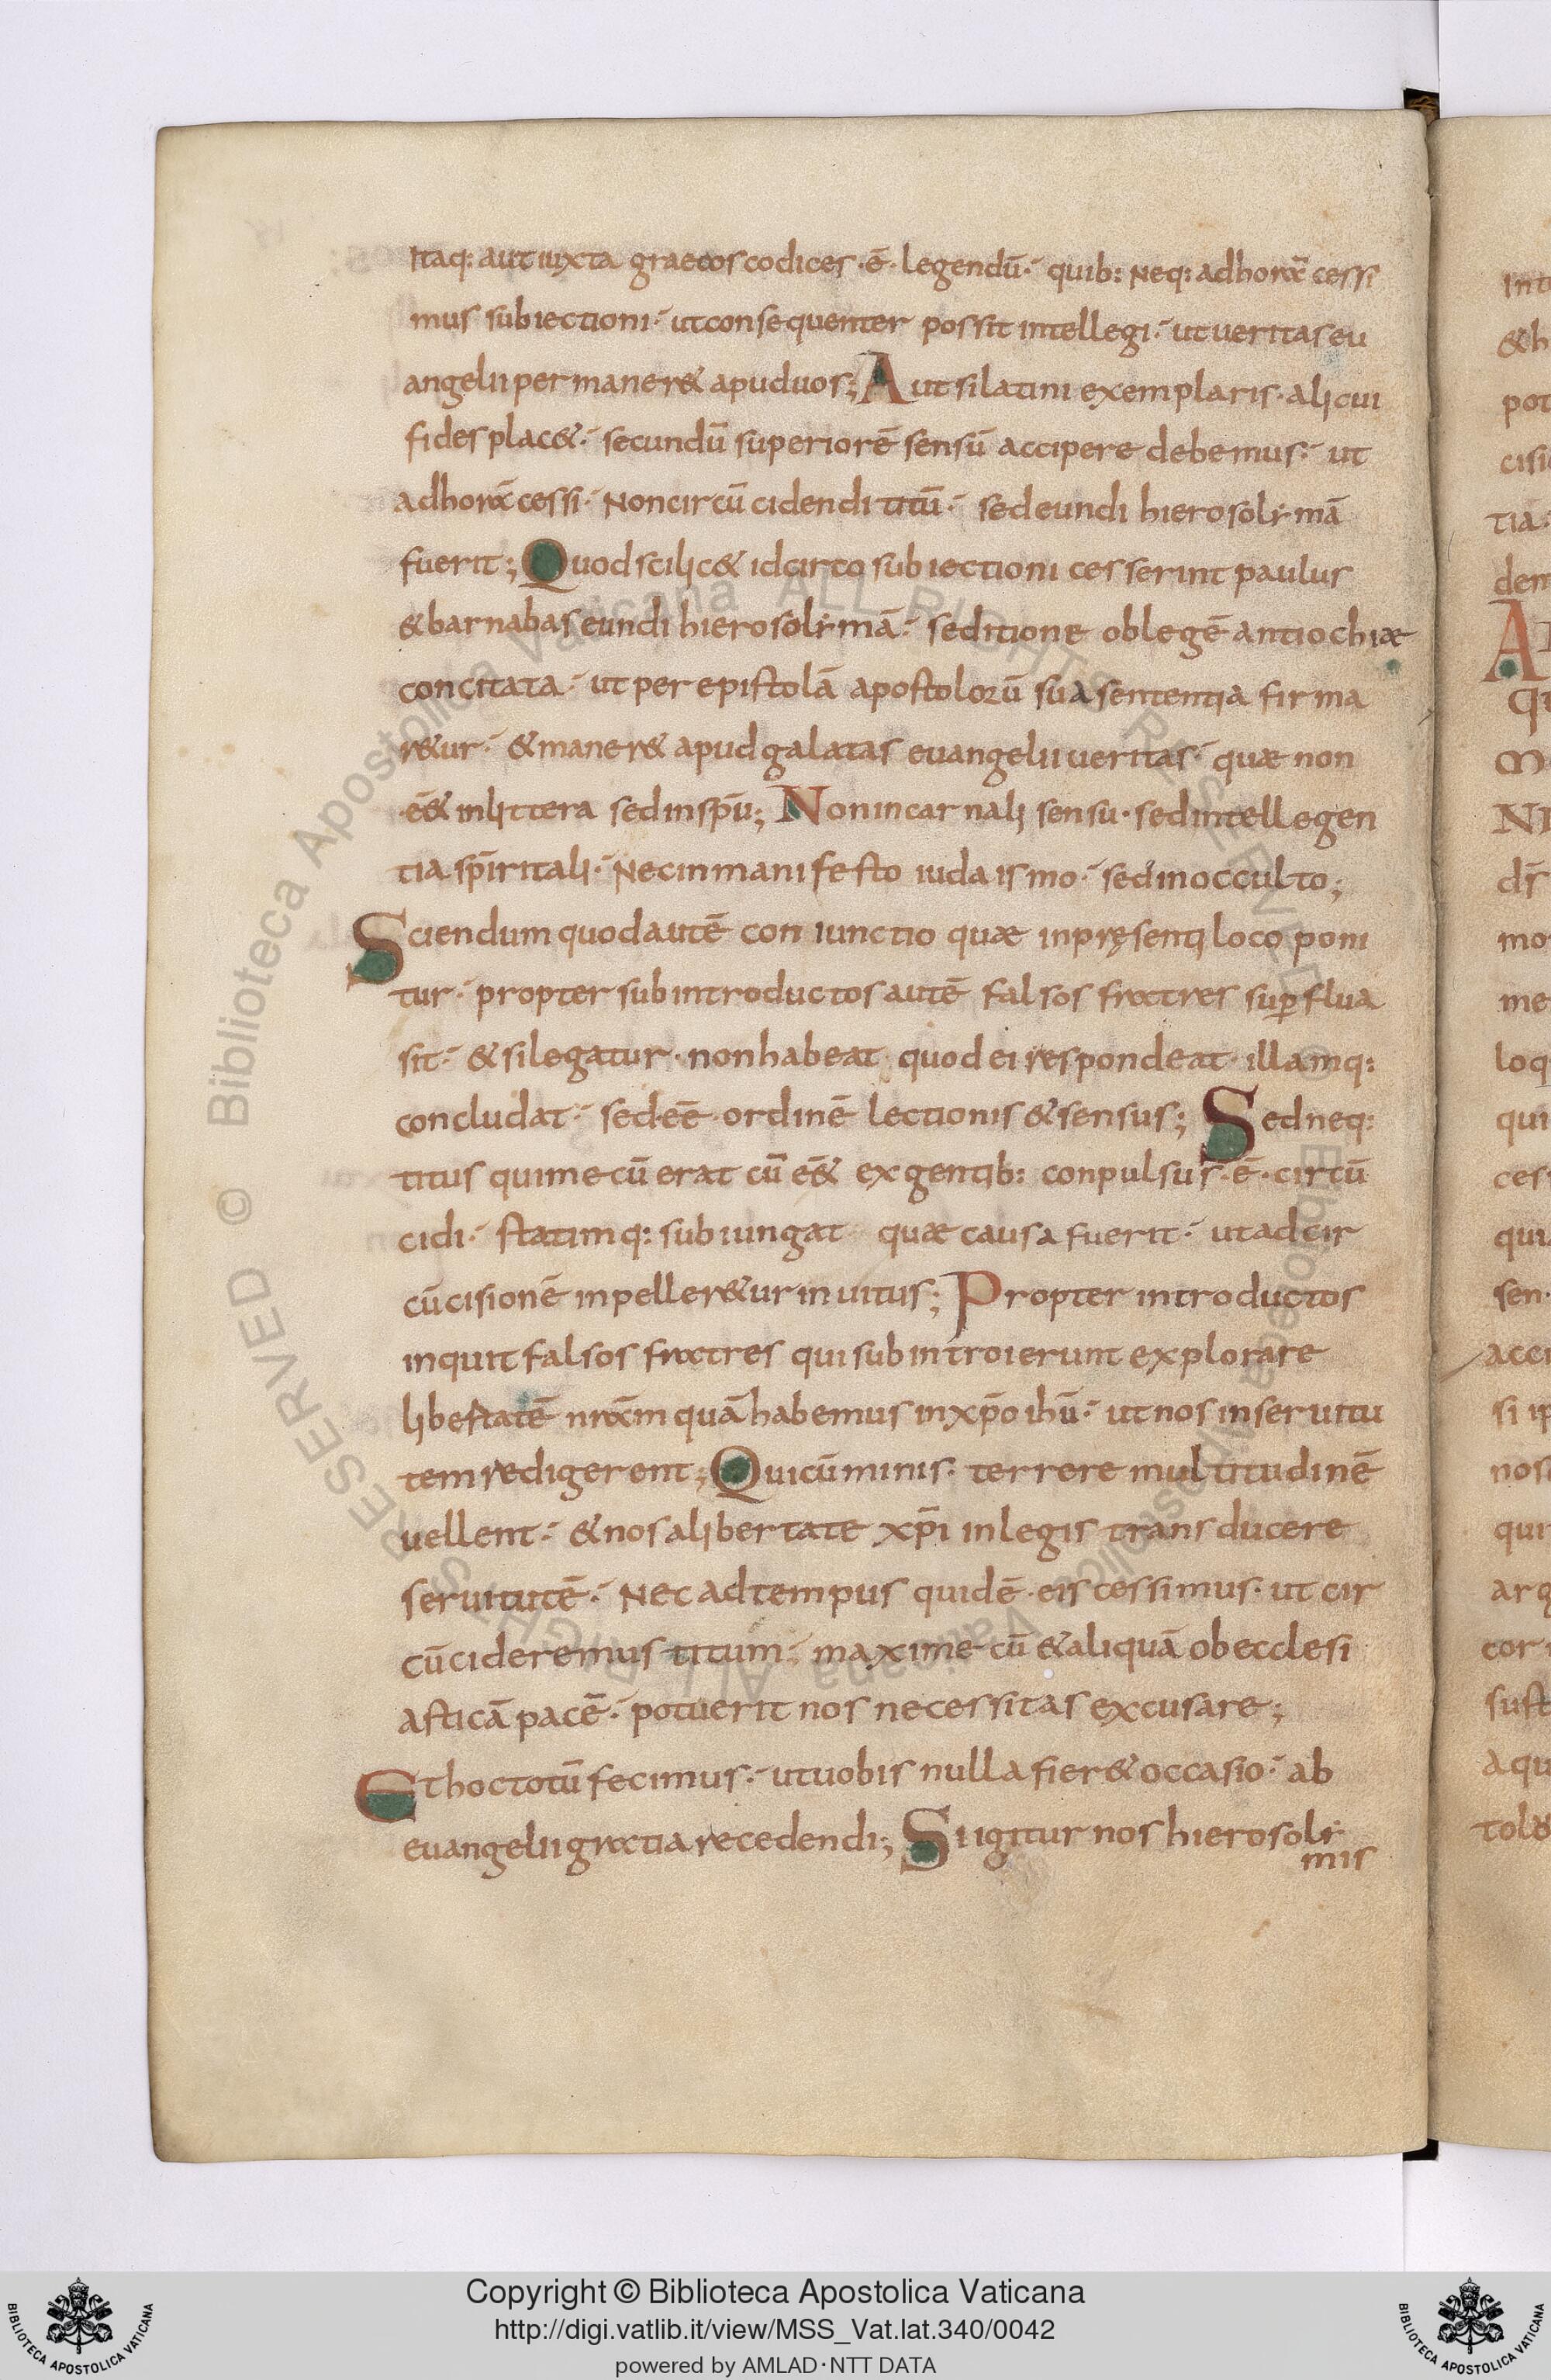 Itaq: aut iuxta graecos codices ·ē· legendū· quib: Neq: adhorā cessi
mus subiectioni· ut consequenter possit intellegi· ut ueritas eu
angelii permaner& apud uos; Aut si latini exemplaris· alicui
fides plac&· secundū superiorē sensū accipere debemus· ut
adhorā cessi· Non circūcidendi titū· sed eundi hierosolimā
fuerit; Quod scilic& idcirco subiectioni cesserint paulus
& barnabas eundi hierosolimā· seditione ob legē antiochiae
concitata· ut per epistolā apostolorū sua sententia firma
r&ur· & maner& apud galatas euangelii ueritas· quae non
·ē& in littera sed in spū; Non in carnali sensu· sed intellegen
tia spiritali· Nec in manifesto iudaismo· sed in occulto;
Sciendum quod autē coniunctio quae in pręsenti loco poni
tur· propter subintroductos autē falsos fratres supflua
sit· & si legatur· non habeat quod ei respondeat· illamq:
concludat· sed eē ordinē lectionis & sensus; Sed neq:
titus qui mecū erat cū eē& ex gentib: conpulsus ·ē· circū
cidi· statimq: subiungat quae causa fuerit· ut ad cir
cūcisionē inpeller&ur inuitus; Propter introductos
inquit falsos fratres qui subintroierunt explorare
libertatē nrām quā habemus in xpō ihū· ut nos in seruitu
tem redigerent; Qui cū minis· terrere multitudinē
uellent· & nos a libertate xpi in legis transducere
seruitutē· Nec ad tempus quidē eis cessimus· ut cir
cūcideremus titum· maxime cū & aliquā ob ecclesi
asticā pacē· potuerit nos necessitas excusare;
Et hoc totū fecimus· ut uobis nulla fier& occasio· ab
euangelii gratia recedendi; Si igitur nos hierosoli
mis
Int
&h
pot
cisi
tia:
dem
A
qu
NI
dr̄
mo
me
loq
qui
ces
qui
sen·
acci
si ip
nos
qui
arg
cor
sust
aqu
© Biblioteca Apostolica Vaticana ALL RIGHTS RESERVED
Copyright © Biblioteca Apostolica Vaticana
http://digi.vatlib.it/view/MSS_Vat.lat.340/0042
powered by AMLAD·NTT DATA
BIBLIOTECA APOSTOLICA VATICANA
BIBLIOTECA APOSTOLICA VATICANA